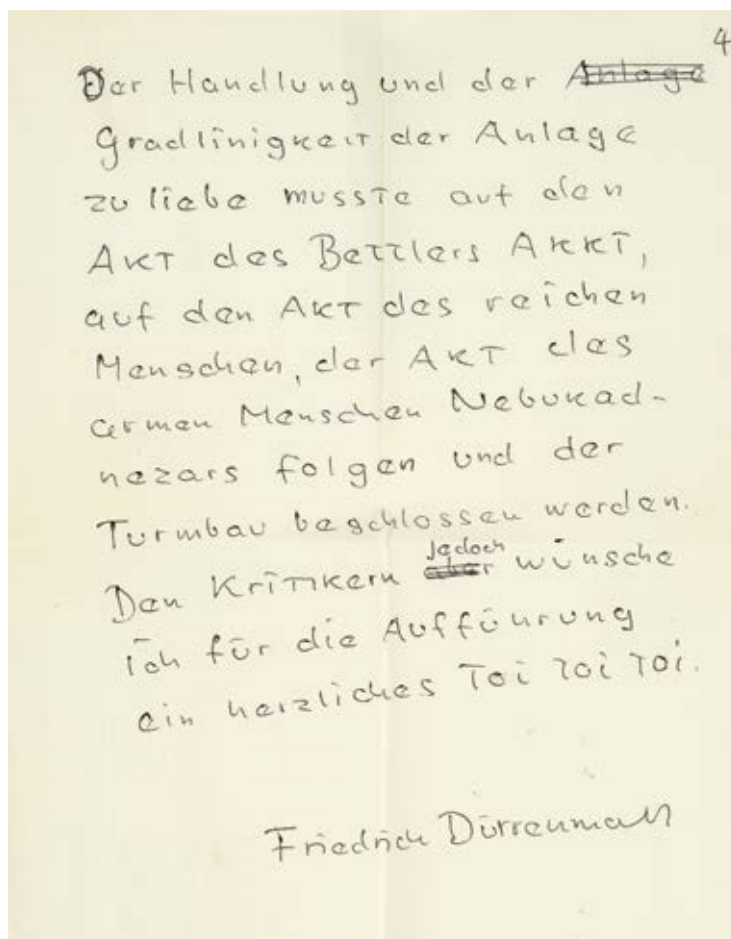 4
Der Handlung und der Anlage
Gradlinigkeit der Anlage
zu liebe musste auf den
Akt des Bettlers Akki,
auf den Akt des reichen
Menschen, der Akt des
armen Menschen Nebukad-
nezars folgen und der
Turmbau beschlossen werden.
Den Kritikern aber jedoch wünsche
ich für die Aufführung
ein herzliches Toi Toi Toi.
Friedrich Dürrenmatt